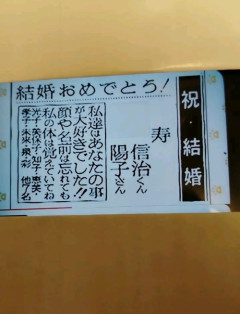 結婚おめでとう!
祝・結婚
寿
信治くん
陽子さん
私達はあなたの事
が大好きでした!!
顔や名前は忘れても
私の体は覚えていてね
光子・美保子・知子・恵美・
孝子・朱美・奥弥・他7名